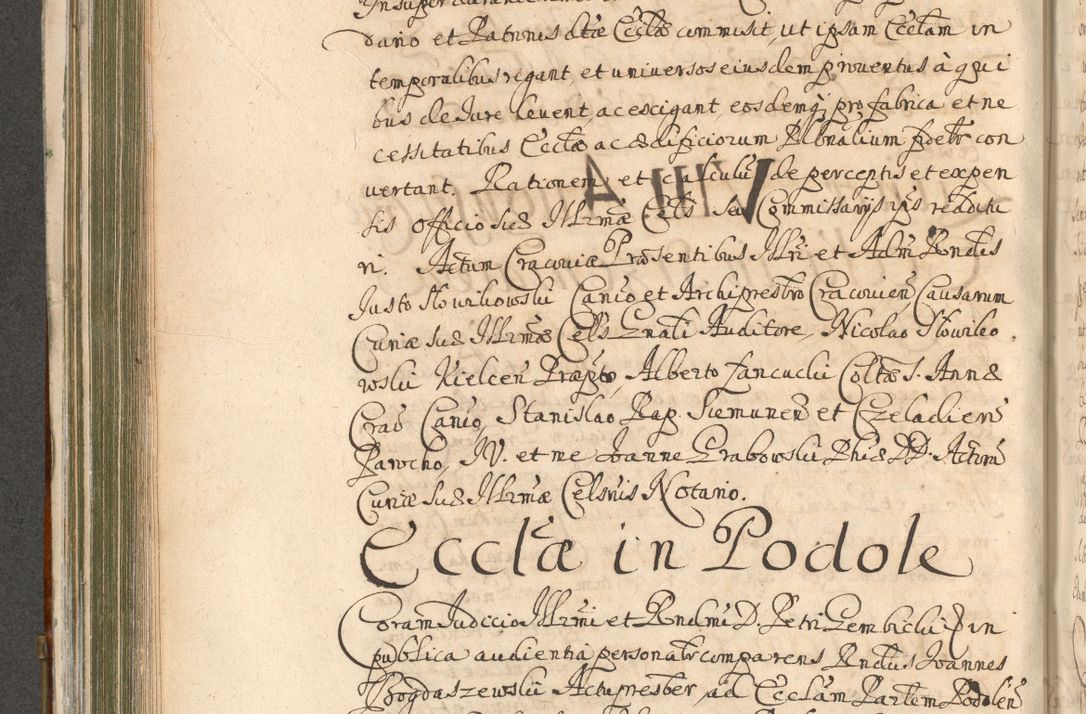 In super
dario et Patronus dtæ Ecclæ commisit, ut ipsam Ecclam in
temporalibus regant, et universos eiusdem proventus à qui
bus de Iure levent, ac exigant, eosdemq, pro fabrica et ne
cessitatibus Ecclæ ac ædificiorum Plbnalium con
vertant. Rationem et calculu de perceptis et expen
sis officio suæ Illrmæ Cels seu Commissarijs ipius redditu
ri. Actum Cracoviæ Præsentibus Illri et Adm Rendis
Iusto Słowikowski Canco et Archipresbro Cracovien, Causarum
Curiæ suæ Illrmæ Cels Gnali Auditore, Nicolao Słowiko
wski Kielcen Præpto, Alberto Łancucki Colltæ S. Annæ
Crac Canco, Stanislao Rap. Siemunen et Czeladien
Parocho, N. et me Ioanne Grabowski Phiæ D. Actorū
Curiæ suæ Illrmæ Celsnis Notario.
Ecclæ in Podole
Coram Iudicio Illrmi et Rndmi D. Petri Gembicki in
publica audientia personalr comparens Rndus Ioannes
Bogdaszewski Actupresber, ad Ecclam Parlem Podolen